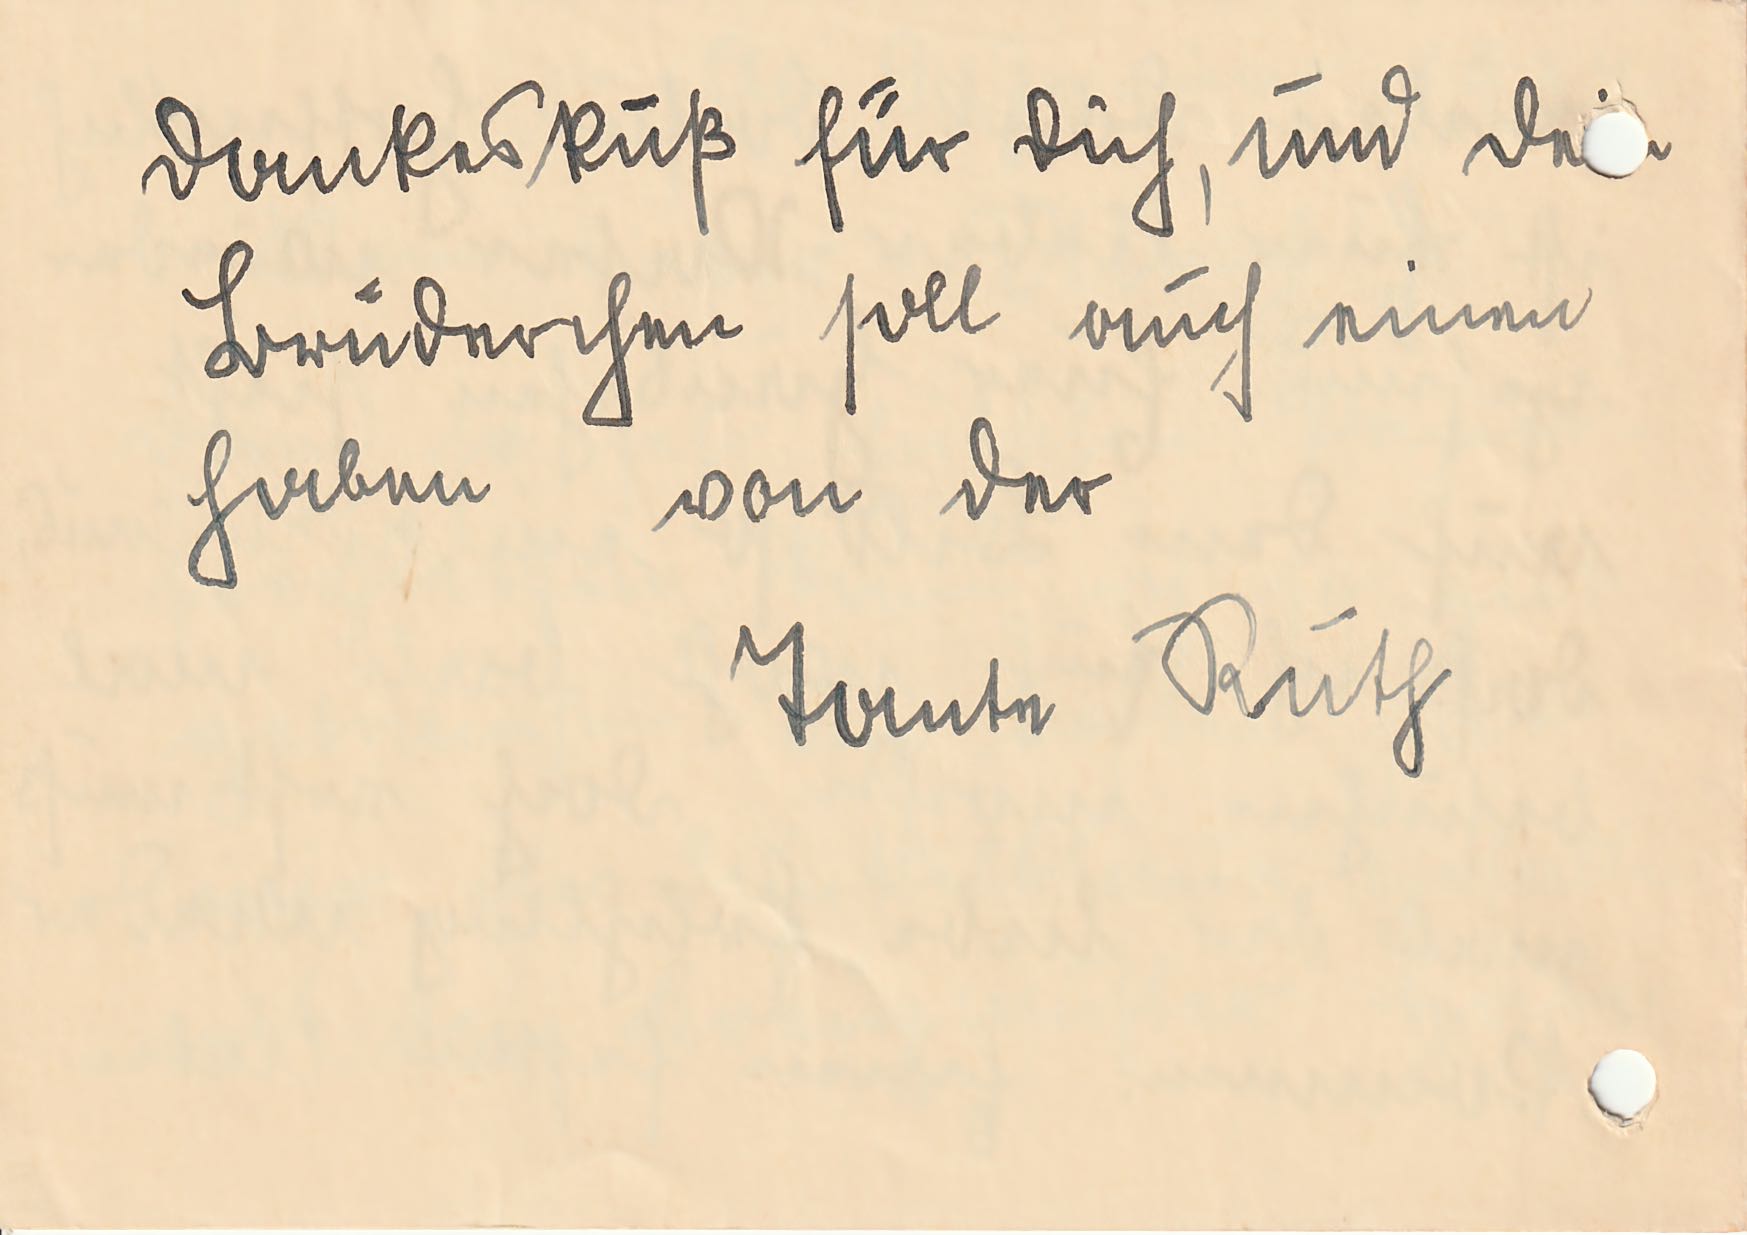 Dankeskuß für Dich, und dein
Brüderchen soll auch einen
haben von der
Tante Ruth